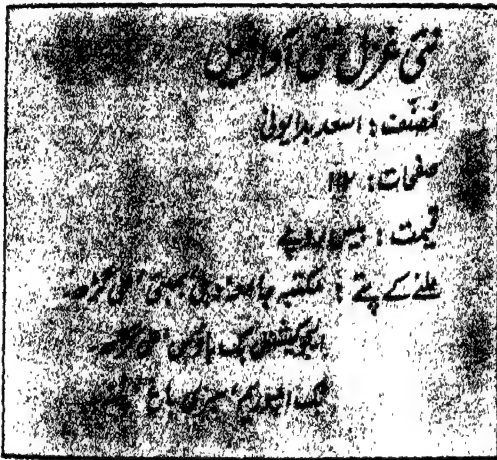 نئی غزل نئی آوازیں
مُصنّف: اسعد بدایونی
صفحات: ۱۱۲
قیمت: بیس روپے
ملنے کے پتے: مکتبہ جامعہ، دہلی، بمبئی، علی گڑھ
ایجوکیشنل بک ہاؤس، علی گڑھ
بک امپوریم، سبزی باغ